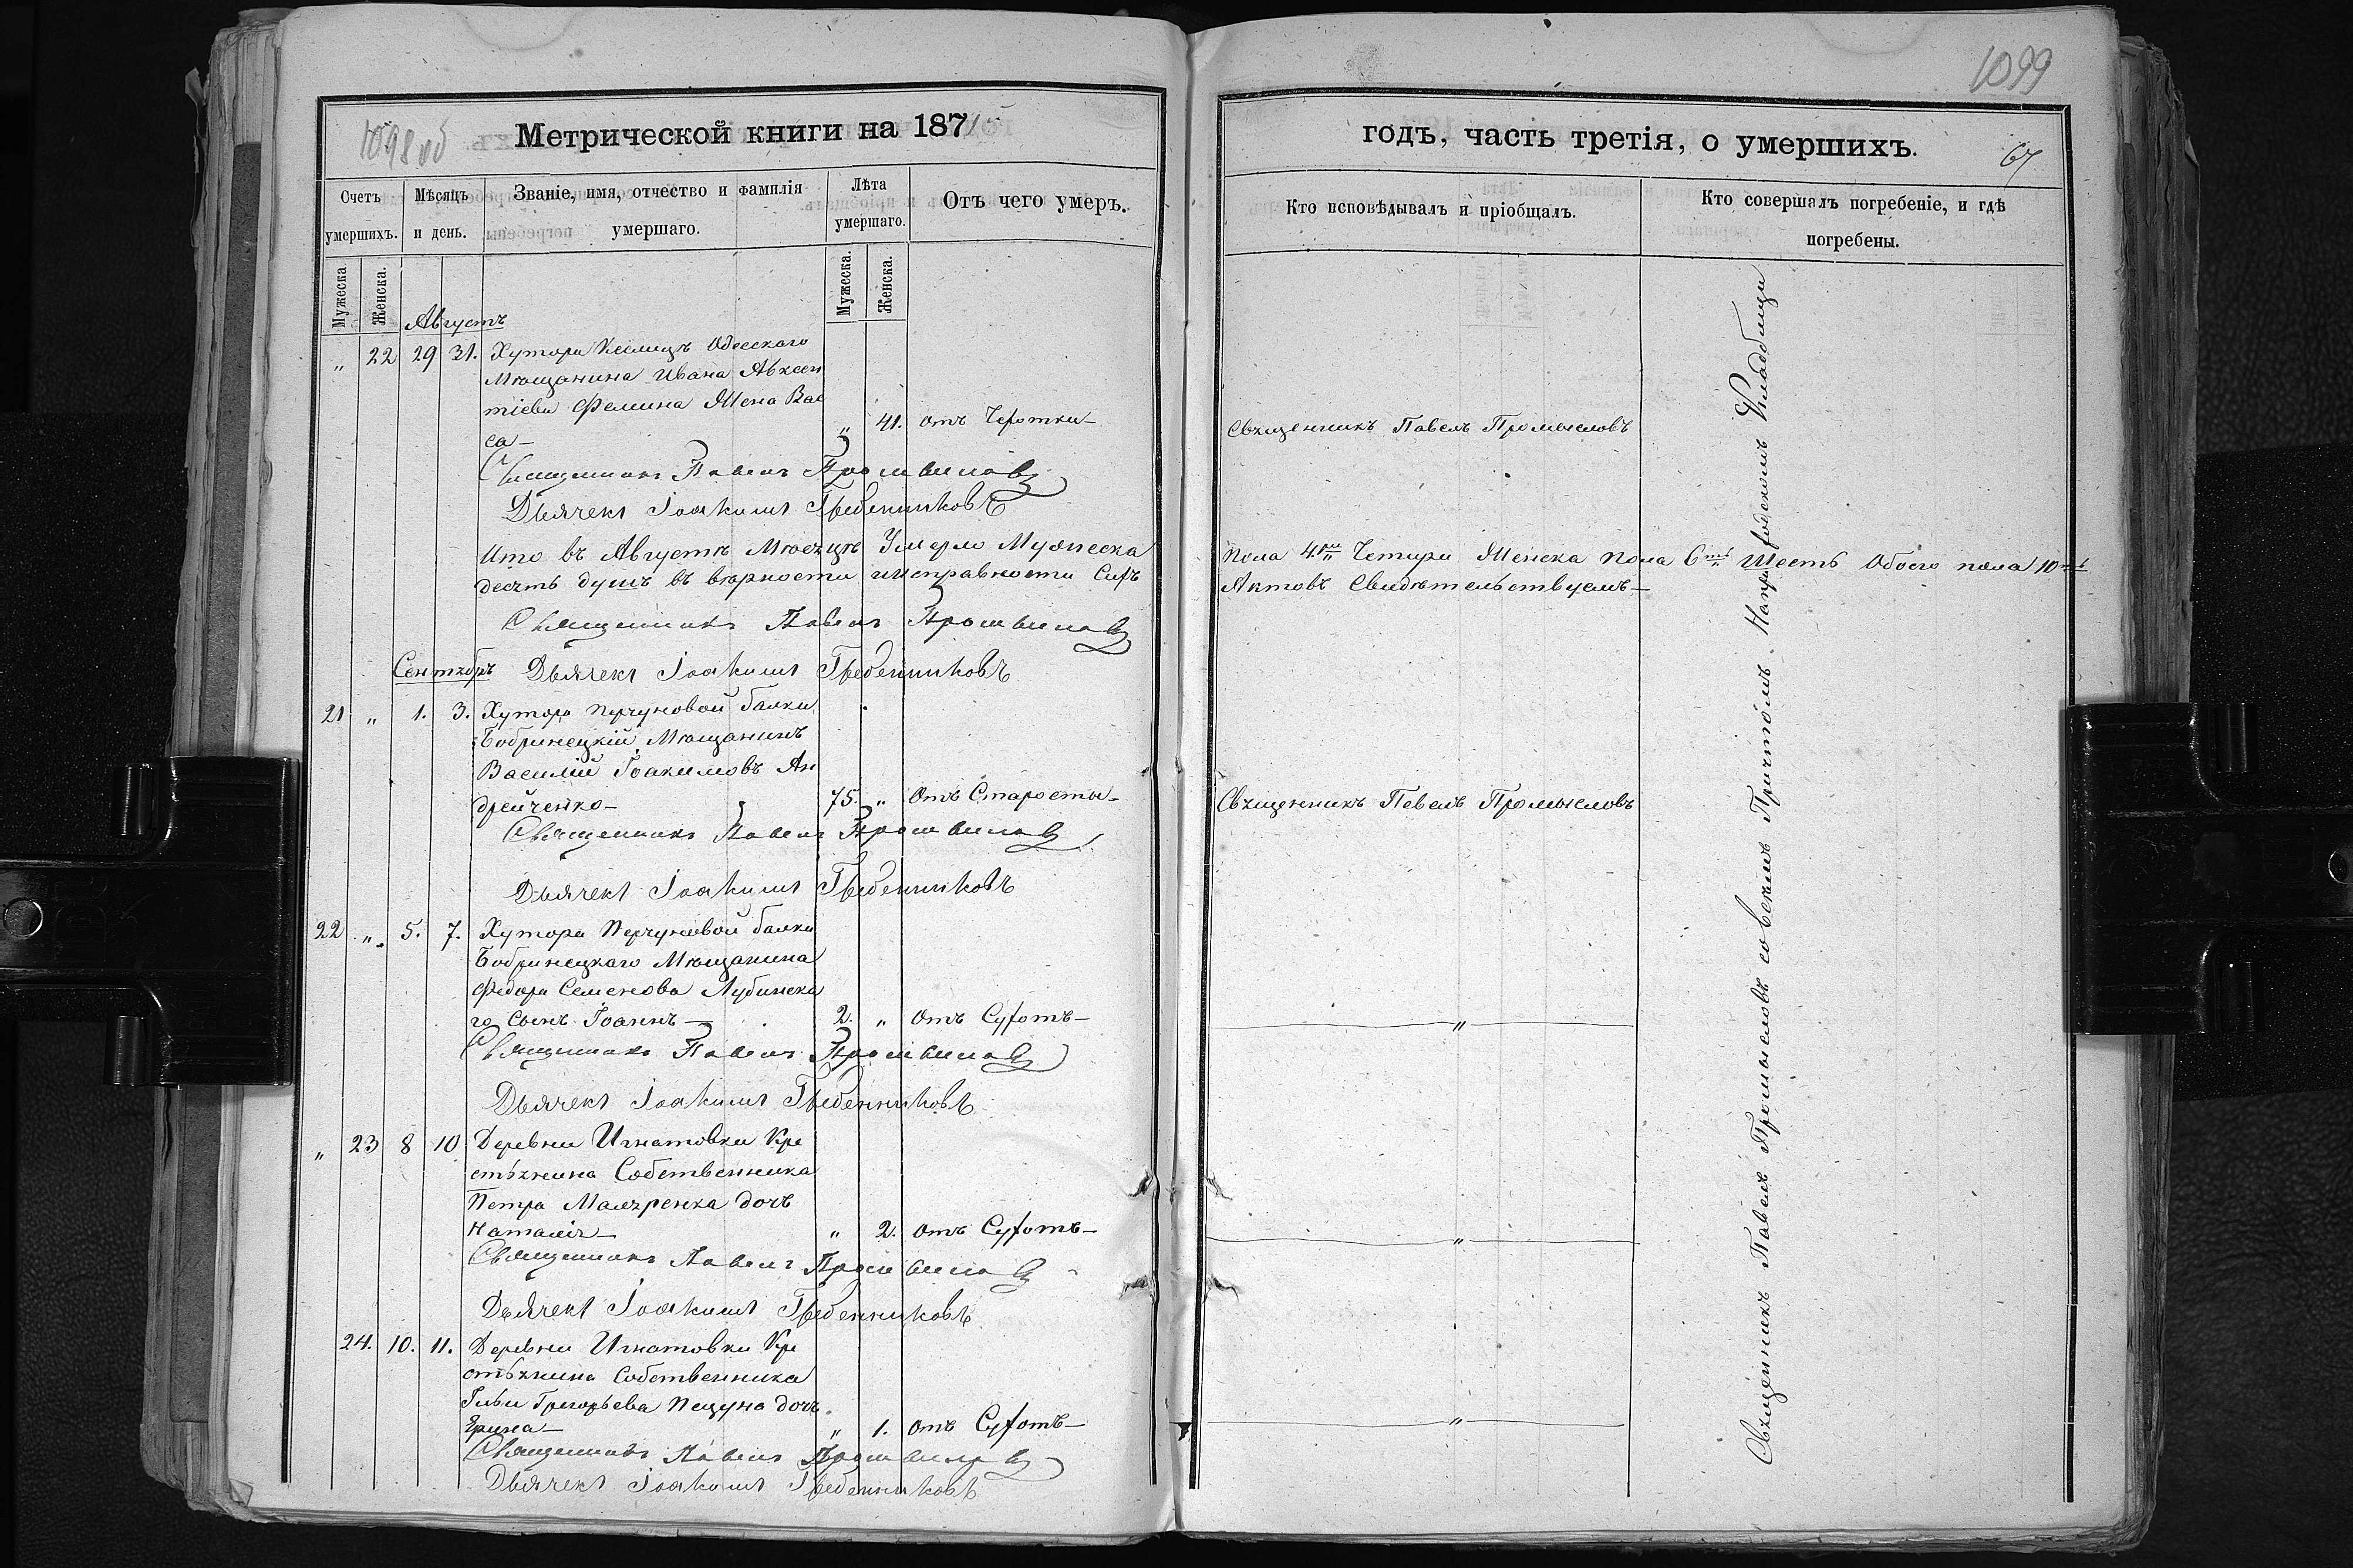 1098 об
Метрической книги на 1871
Счетъ умершихъ.
Мѣсяцъ и день.
Званіе, имя, отчество и фамилія умершаго.
Лѣта умершаго.
Отъ чего умеръ.
Мужеска
Женска.
Мужеска.
Женска.
Августъ
„ 22 29 31. Хутора Одесскаго
Мѣщанина Ивана Авксен
тіева Фемина Жена Вас
са— „ 41. отъ Чехотки—
Священникъ Павелъ Промысловъ
Дьячекъ Іоакимъ Гребенниковъ
Что въ Августѣ Мѣсяцѣ Умерло Мужеска
десять душъ въ вѣрности исправности Сихъ
Священникъ Павелъ Промысловъ
Сентябрь Дьячекъ Іоакимъ Гребенниковъ
21 „ 1. 3. Хутора Перчуновой балки
Бобринецкій Мѣщанинъ
Василій Іоакимовъ Ан
дрейченко— 75. „ Отъ Старости—
Священникъ Павелъ Промысловъ
Дьячекъ Іоакимъ Гребенниковъ
22 „ 5. 7. Хутора Перчуновой балки
Бобринецкаго Мѣщанина
Федора Семенова Лубинска
го Сынъ Іоаннъ— 2. „ Отъ Сухотъ—
Священникъ Павелъ Промысловъ
Дьячекъ Іоакимъ Гребенниковъ
„ 23 8 10 Деревни Игнатовки Кре
стьянина Собственника
Петра Маляренка дочь
Наталія— „ 2. отъ Сухотъ—
Священникъ Павелъ Промысловъ
Дьячекъ Іоакимъ Гребенниковъ
24. 10. 11. Деревни Игнатовки Кре
стьянина Собственника
Ильи Григорьева Пецуна дочь
Ирина— „ 1. отъ Сухотъ—
Священникъ Павелъ Промысловъ
Дьячекъ Іоакимъ Гребенниковъ
1099
годъ, часть третія, о умершихъ.
67
Кто исповѣдывалъ и пріобщалъ.
Кто совершалъ погребеніе, и гдѣ погребены.
Священникъ Павелъ Промысловъ
пола 4ри Четыри Женска пола 6ть Шесть Обоего пола 10ть
Актовъ Свидѣтельствуемъ—
Священникъ Павелъ Промысловъ
„
„
„
Священникъ Павелъ Промысловъ со всѣмъ Причтомъ. На Кладбищи